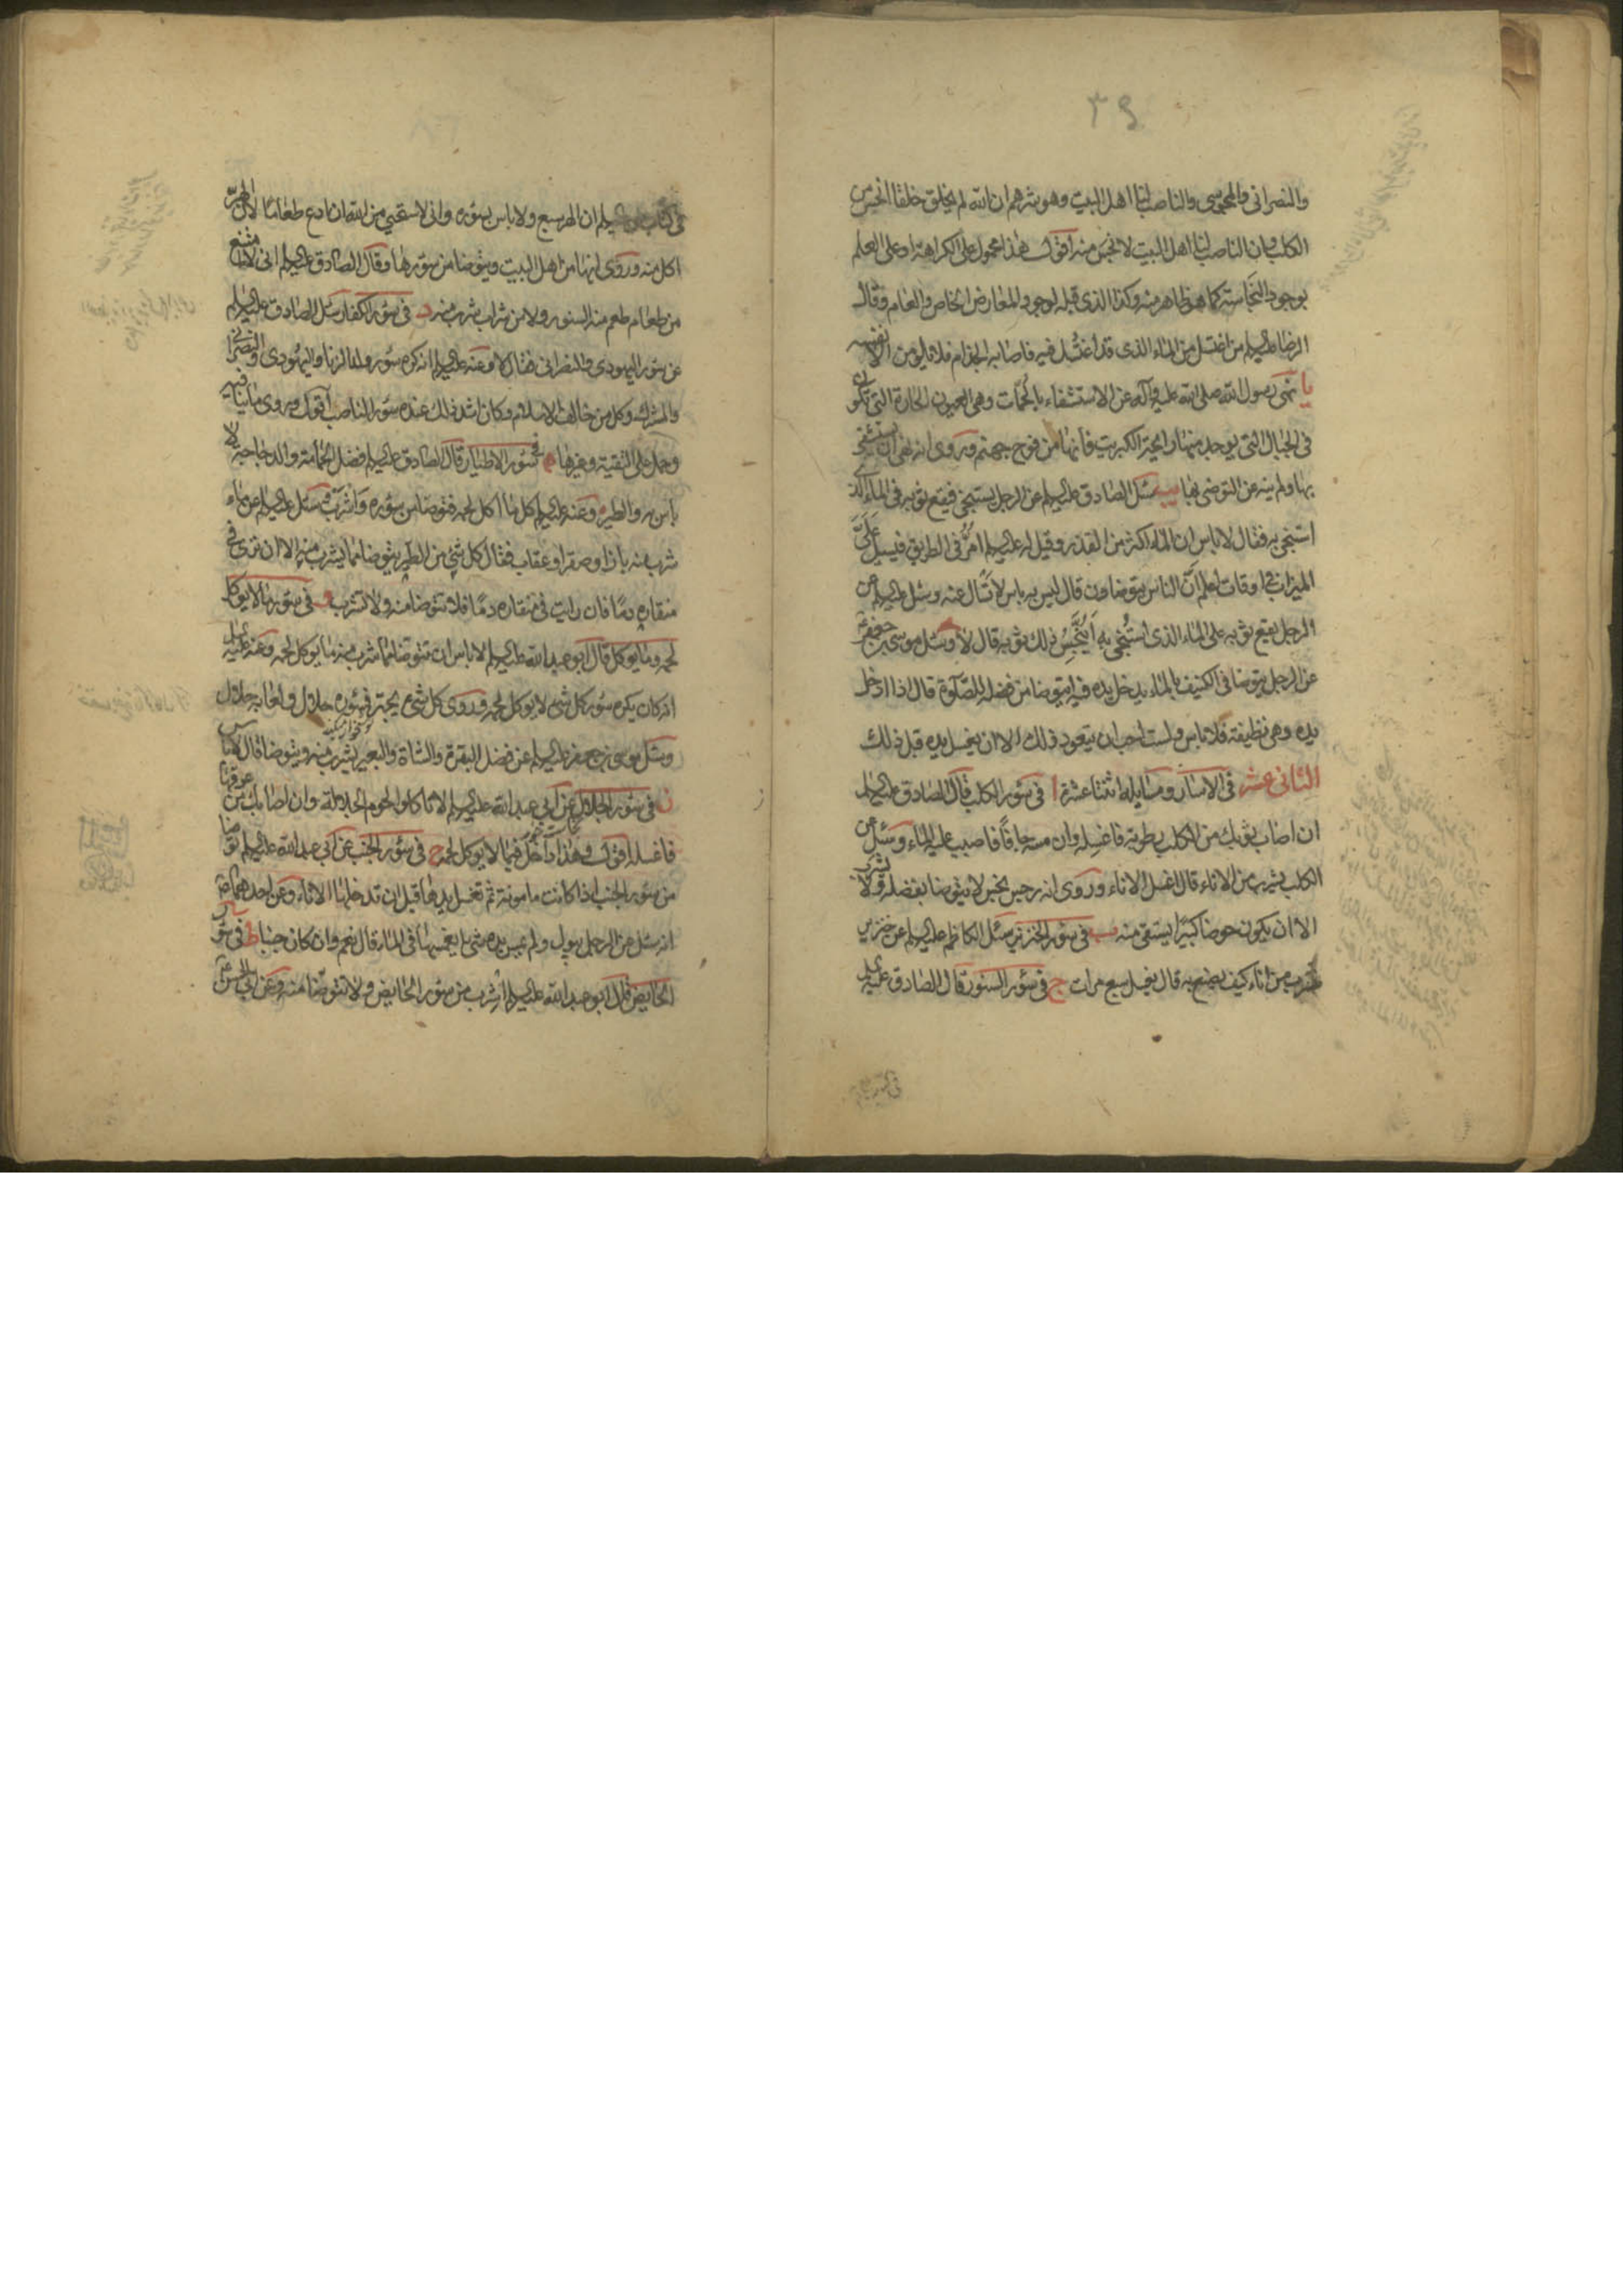 ٣٩
والنصرانی والمجوسی والناصب لنا اهل البیت وهو شرهم ان الله لم یخلق خلقا انجس من
الکلب وان الناصب لنا اهل البیت لانجس منه اقول هذا محمول علی الکراهة او علی العلم
بوجود النجاسة کما هو ظاهر منه وکذا الذی قبله لوجود المعارض الخاص والعام وقال
الرضا علیه السلم من اغتسل من الماء الذی قد اغتسل فیه فاصابه الجذام فلا یلومن الا نفسه
یا نهی رسول الله صلی الله علیه وآله عن الاستشفاء بالحمات وهی العیون الحارة التی تکون
فی الجبال التی یوجد منها رایحة الکبریت فانها من فوح جهنم وروی انه نهی ان یستشفی
بها ولم ینه عن التوضی بها یب سئل الصادق علیه السلم عن الرجل یستنجی فیقع ثوبه فی الماء الذی
استنجی به فقال لا باس ان الماء اکثر من القذر وقیل له علیه السلم امر فی الطریق فیسیل علی
المیزاب فی اوقات اعلم ان الناس یتوضاون قال لیس به باس لا تسال عنه وسئل علیه السلم عن
الرجل یقع ثوبه علی الماء الذی استنجی به اینجس ذلک ثوبه قال لا وسئل موسی بن جعفر
عن الرجل یتوضا فی الکنیف بالماء یدخل یده فیه ایتوضا من فضله للصلوة قال اذا ادخل
یده وهی نظیفة فلا باس ولست احب ان یتعود ذلک الا ان یغسل یده قبل ذلک
الثانی عشر فی الاسآر ومسایله اثنتا عشرة ا فی سور الکلب قال الصادق علیه السلم
ان اصاب ثوبک من الکلب رطوبة فاغسله وان مسه جافا فاصبب علیه الماء وسئل عن
الکلب یشرب من الاناء قال اغسل الاناء وروی انه رجس نجس لا یتوضا بفضله ولا یشرب
الا ان یکون حوضا کبیرا یستقی منه ب فی سور الخنزیر سئل الکاظم علیه السلم عن خنزیر
شرب من اناء کیف یصنع به قال یغسل سبع مرات ج فی سور السنور قال الصادق علیه السلم
فی کتاب علی علیه السلم ان الهر سبع ولا باس بسوره وانی لاستحیی من الله ان ادع طعاما لان الهر
اکل منه وروی انها من اهل البیت ویتوضا من سورها وقال الصادق علیه السلم انی لا امتنع
من طعام طعم منه السنور ولا من شراب شرب منه د فی سور الکفار سئل الصادق علیه السلم
عن سور الیهودی والنصرانی فقال لا وعنه علیه السلم انه کره سور ولد الزنا والیهودی والنصرانی
والمشرک وکل من خالف الاسلام وکان اشد ذلک عنده سور الناصب اقول وروی ما ینافیه
وحمل علی التقیة وغیرها ه فی سور الاطیار قال الصادق علیه السلم فضل الحمامة والدجاجة لا
باس به والطیر وعنه علیه السلم کل ما اکل لحمه فتوضا من سوره واشرب وسئل علیه السلم عن ماء
شرب منه باز او صقر او عقاب فقال کل شیء من الطیر یتوضا مما یشرب منه الا ان تری فی
منقاره دما فان رایت فی منقاره دما فلا تتوضا منه ولا تشرب و فی سور ما لا یوکل
لحمه وما یوکل قال ابو عبد الله علیه السلم لا باس ان تتوضا مما شرب منه ما یوکل لحمه وعنه علیه السلم
انه کان یکره سور کل شیء لا یوکل لحمه وروی کل شیء یجتر فسوره حلال ولعابه حلال
وسئل موسی بن جعفر علیه السلم عن فضل البقرة والشاة والبعیر یشرب منه ویتوضا قال لا باس
ز فی سور الجلال عن ابی عبد الله علیه السلم لا تاکلوا لحوم الجلالة وان اصابک من عرقها
فاغسله اقول وهذا داخل فیما لا یوکل لحمه ح فی سور الجنب عن ابی عبد الله علیه السلم توضا
من سور الجنب اذا کانت مامونة ثم تغسل یدیها قبل ان تدخلها الاناء وعن احدهما
انه سئل عن الرجل یبول ولم یمس یده شیء ایغمسها فی الماء قال نعم وان کان جنبا ط فی سور
الحایض قال ابو عبد الله علیه السلم اشرب من سور الحایض ولا تتوضا منه وعن ابی الحسن